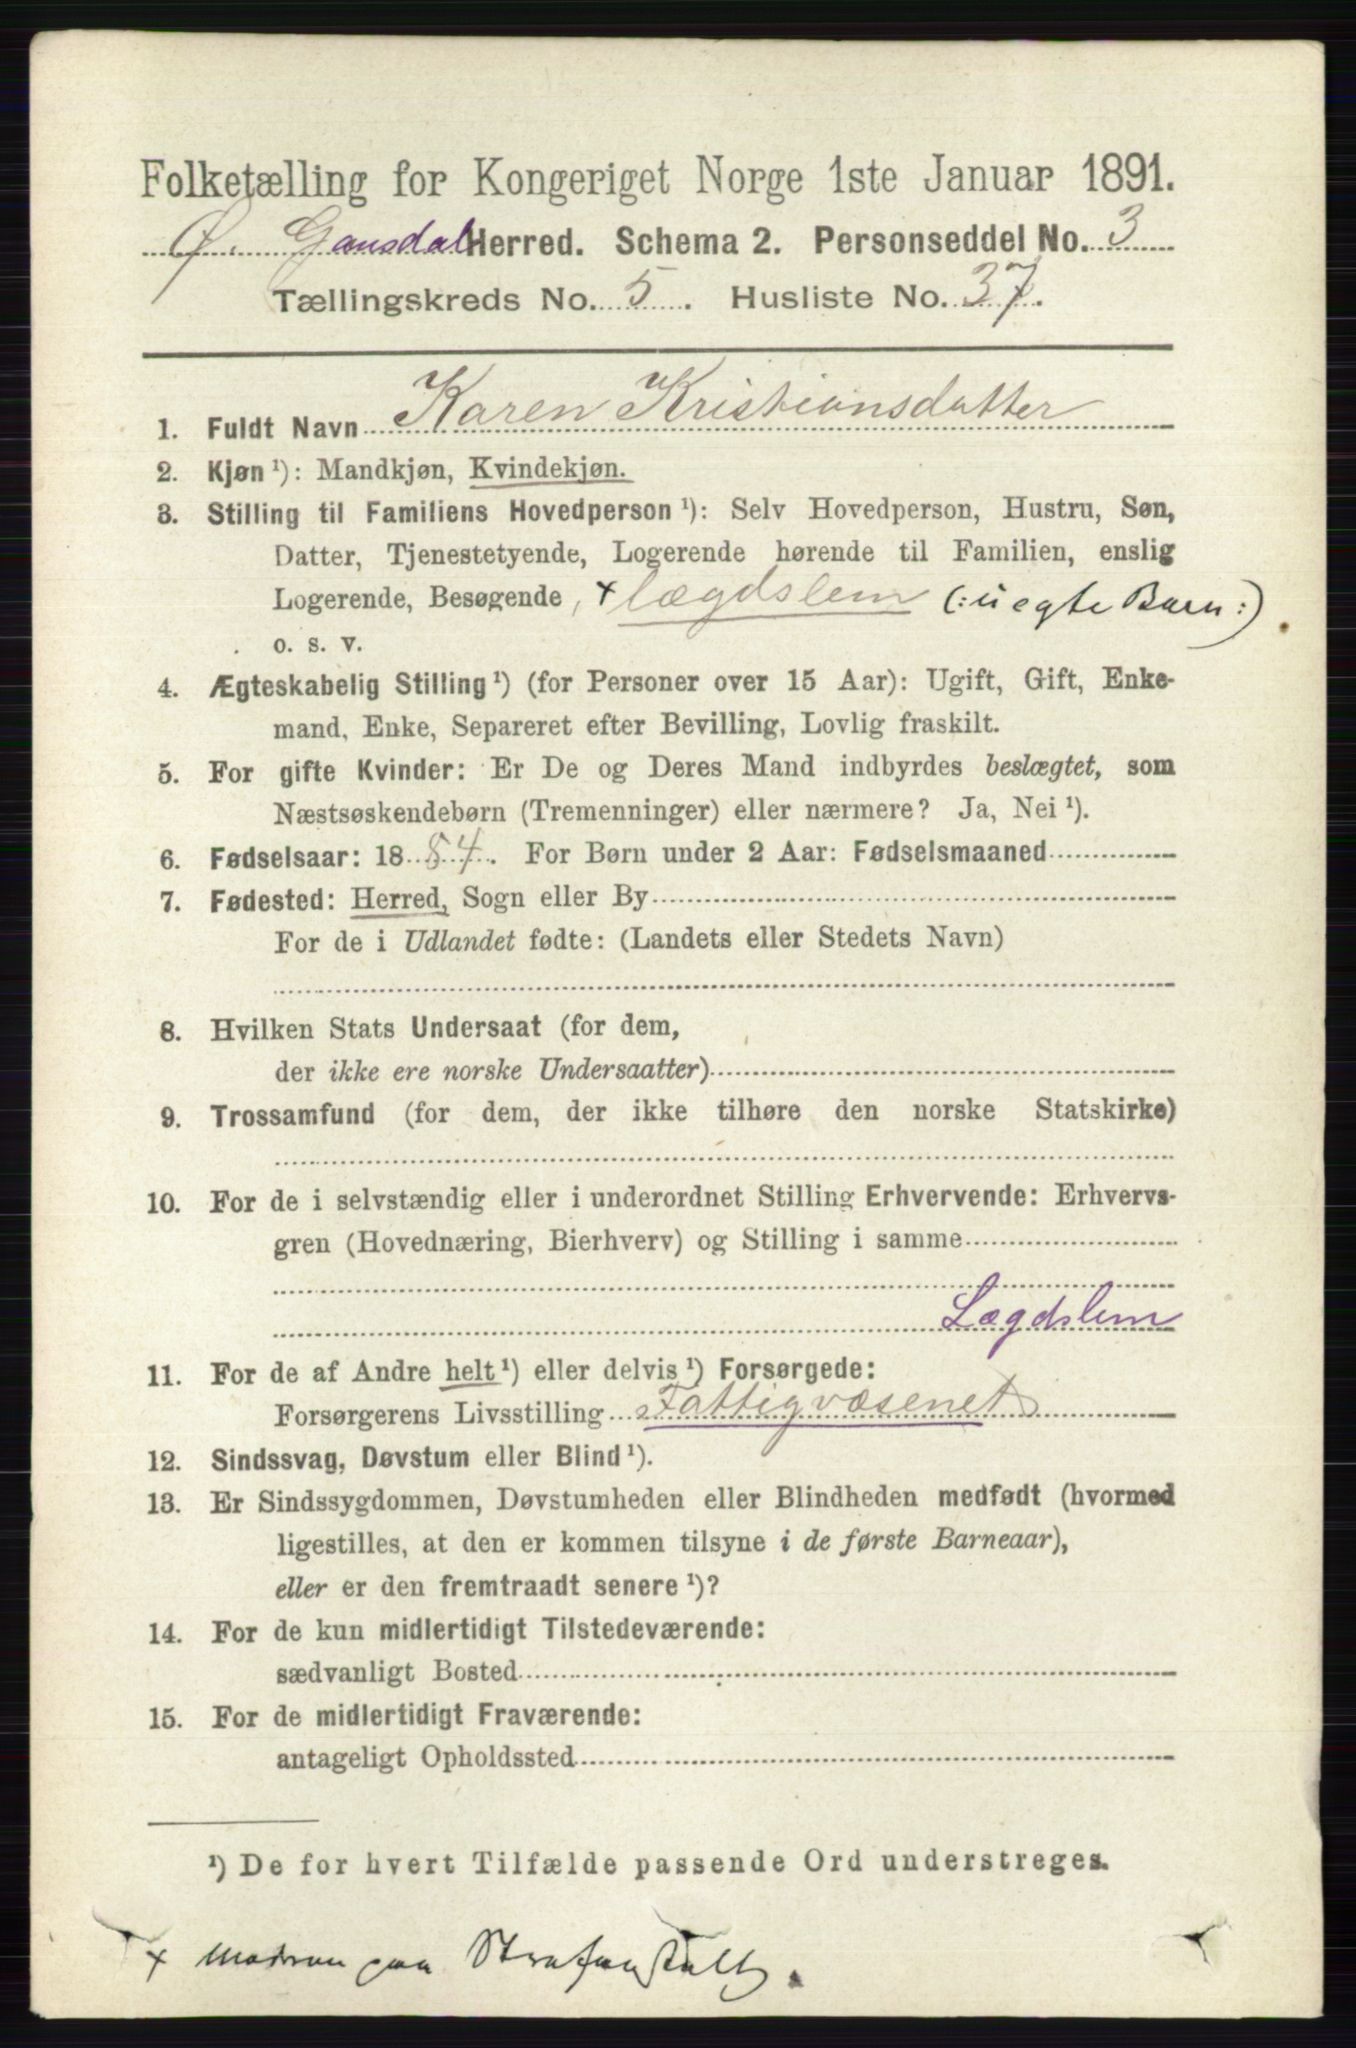 Folketælling for Kongeriget Norge 1ste Januar 1891.
Ø. Gausdal Herred. Schema 2. Personseddel No. 3
Tællingskreds No. 5. Husliste No. 37.
1. Fuldt Navn Karen Kristiansdatter
2. Kjøn ¹): Mandkjøn, Kvindekjøn.
3. Stilling til Familiens Hovedperson ¹): Selv Hovedperson, Hustru, Søn,
Datter, Tjenestetyende, Logerende hørende til Familien, enslig
Logerende, Besøgende, + lægdslem (: uegte Barn :)
o. s. v.
4. Ægteskabelig Stilling ¹) (for Personer over 15 Aar): Ugift, Gift, Enke-
mand, Enke, Separeret efter Bevilling, Lovlig fraskilt.
5. For gifte Kvinder: Er De og Deres Mand indbyrdes beslægtet, som
Næstsøskendebørn (Tremenninger) eller nærmere? Ja, Nei ¹).
6. Fødselsaar: 1884. For Børn under 2 Aar: Fødselsmaaned
7. Fødested: Herred, Sogn eller By
For de i Udlandet fødte: (Landets eller Stedets Navn)
8. Hvilken Stats Undersaat (for dem,
der ikke ere norske Undersaatter)
9. Trossamfund (for dem, der ikke tilhøre den norske Statskirke)
10. For de i selvstændig eller i underordnet Stilling Erhvervende: Erhvervs-
gren (Hovednæring, Bierhverv) og Stilling i samme
Lægdslem
11. For de af Andre helt ¹) eller delvis ¹) Forsørgede:
Forsørgerens Livsstilling Fattigvæsenet
12. Sindssvag, Døvstum eller Blind ¹).
13. Er Sindssygdommen, Døvstumheden eller Blindheden medfødt (hvormed
ligestilles, at den er kommen tilsyne i de første Barneaar),
eller er den fremtraadt senere ¹)?
14. For de kun midlertidigt Tilstedeværende:
sædvanligt Bosted
15. For de midlertidigt Fraværende:
antageligt Opholdssted
¹) De for hvert Tilfælde passende Ord understreges.
+ Modren paa Strafanstalt